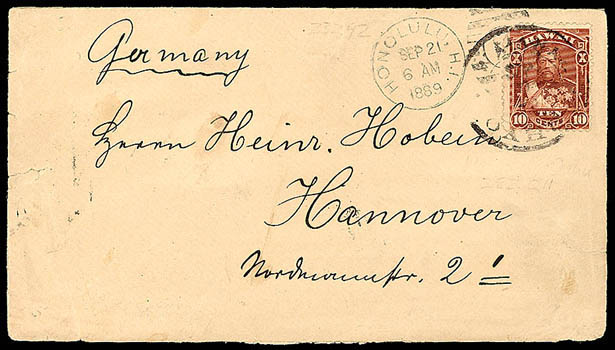 Germany
HONOLULU. H.I.
SEP 21
6 AM
1889
HAWAII
TEN
10 CENTS 10
OAHU
Herrn Heinr. Hobein
Hannover
Nordmannstr. 2